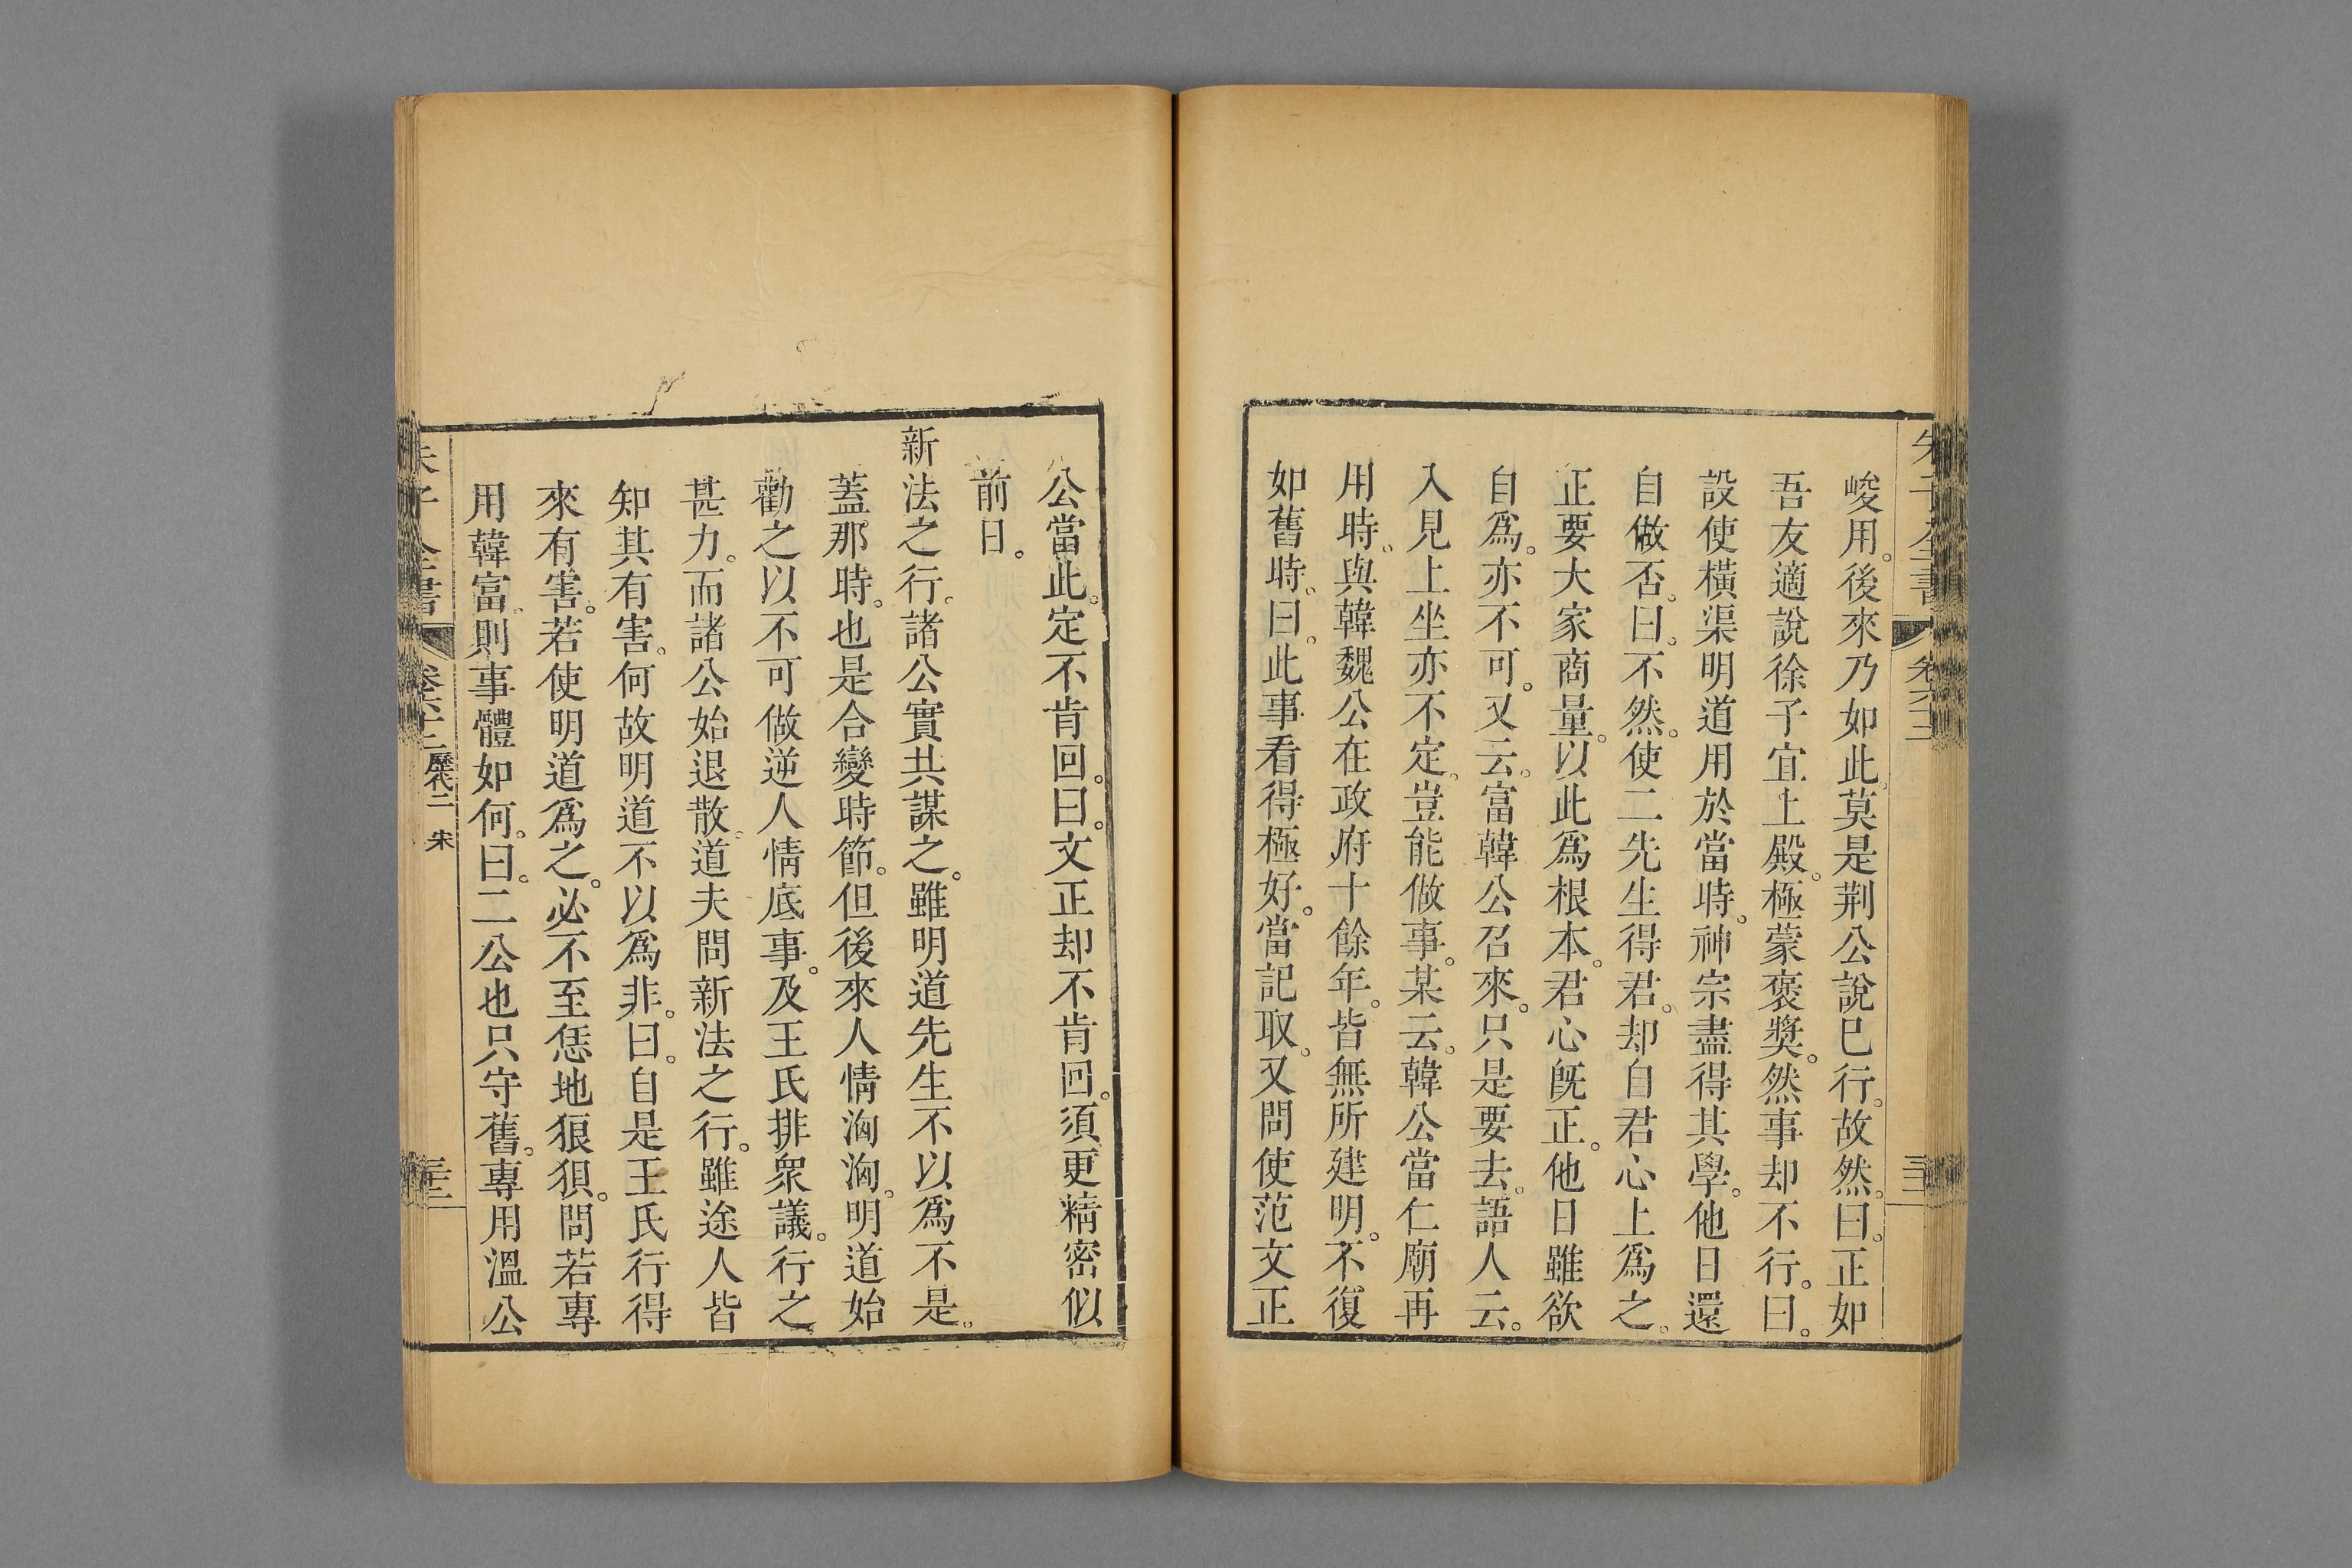 朱子全書 卷六十二
峻用。後來乃如此。莫是荆公說已行。故然。曰。正如
吾友適說徐子宜上殿。極蒙褒奬。然事却不行。曰。
設使橫渠明道用於當時。神宗盡得其學。他日還
自做否。曰。不然。使二先生得君。却自君心上爲之。
正要大家商量。以此爲根本。君心旣正。他日雖欲
自爲。亦不可。又云。富韓公召來。只是要去。語人云。
入見上坐亦不定。豈能做事。某云。韓公當仁廟再
用時。與韓魏公在政府十餘年。皆無所建明。不復
如舊時。曰。此事看得極好。當記取。又問使范文正
公當此。定不肯回。曰。文正却不肯回。須更精密似
前日。
新法之行。諸公實共謀之。雖明道先生不以爲不是。
蓋那時。也是合變時節。但後來人情洶洶。明道始
勸之以不可做逆人情底事。及王氏排衆議。行之
甚力。而諸公始退散。道夫問新法之行。雖途人皆
知其有害。何故明道不以爲非。曰。自是王氏行得
來有害。若使明道爲之。必不至恁地狼狽。問若專
用韓富。則事體如何。曰。二公也只守舊。專用溫公
朱子全書 卷六十二 歷代二 宋